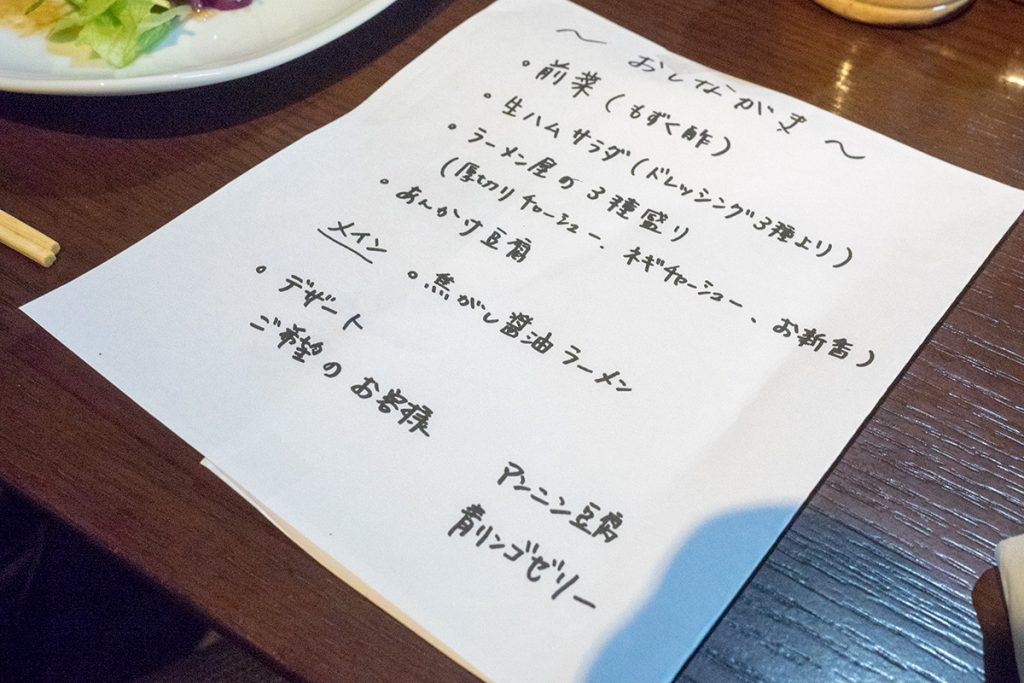 ～ おしながき ～
・前菜（もずく酢）
・生ハムサラダ（ドレッシング3種より）
・ラーメン屋の3種盛り
（厚切りチャーシュー、ネギチャーシュー、お新香）
・あんかけ豆腐
メイン
・焦がし醤油ラーメン
・デザート
ご希望のお客様
アンニン豆腐
青リンゴゼリー